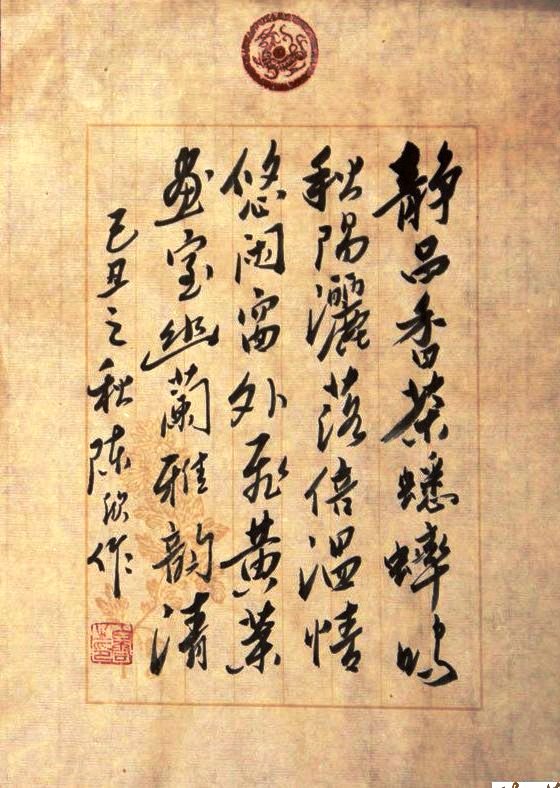 静品香茶蟋蟀鸣
秋陽灑落倍温情
悠闲窗外飛黄葉
画室幽蘭雅韵清
己丑之秋陈欣作